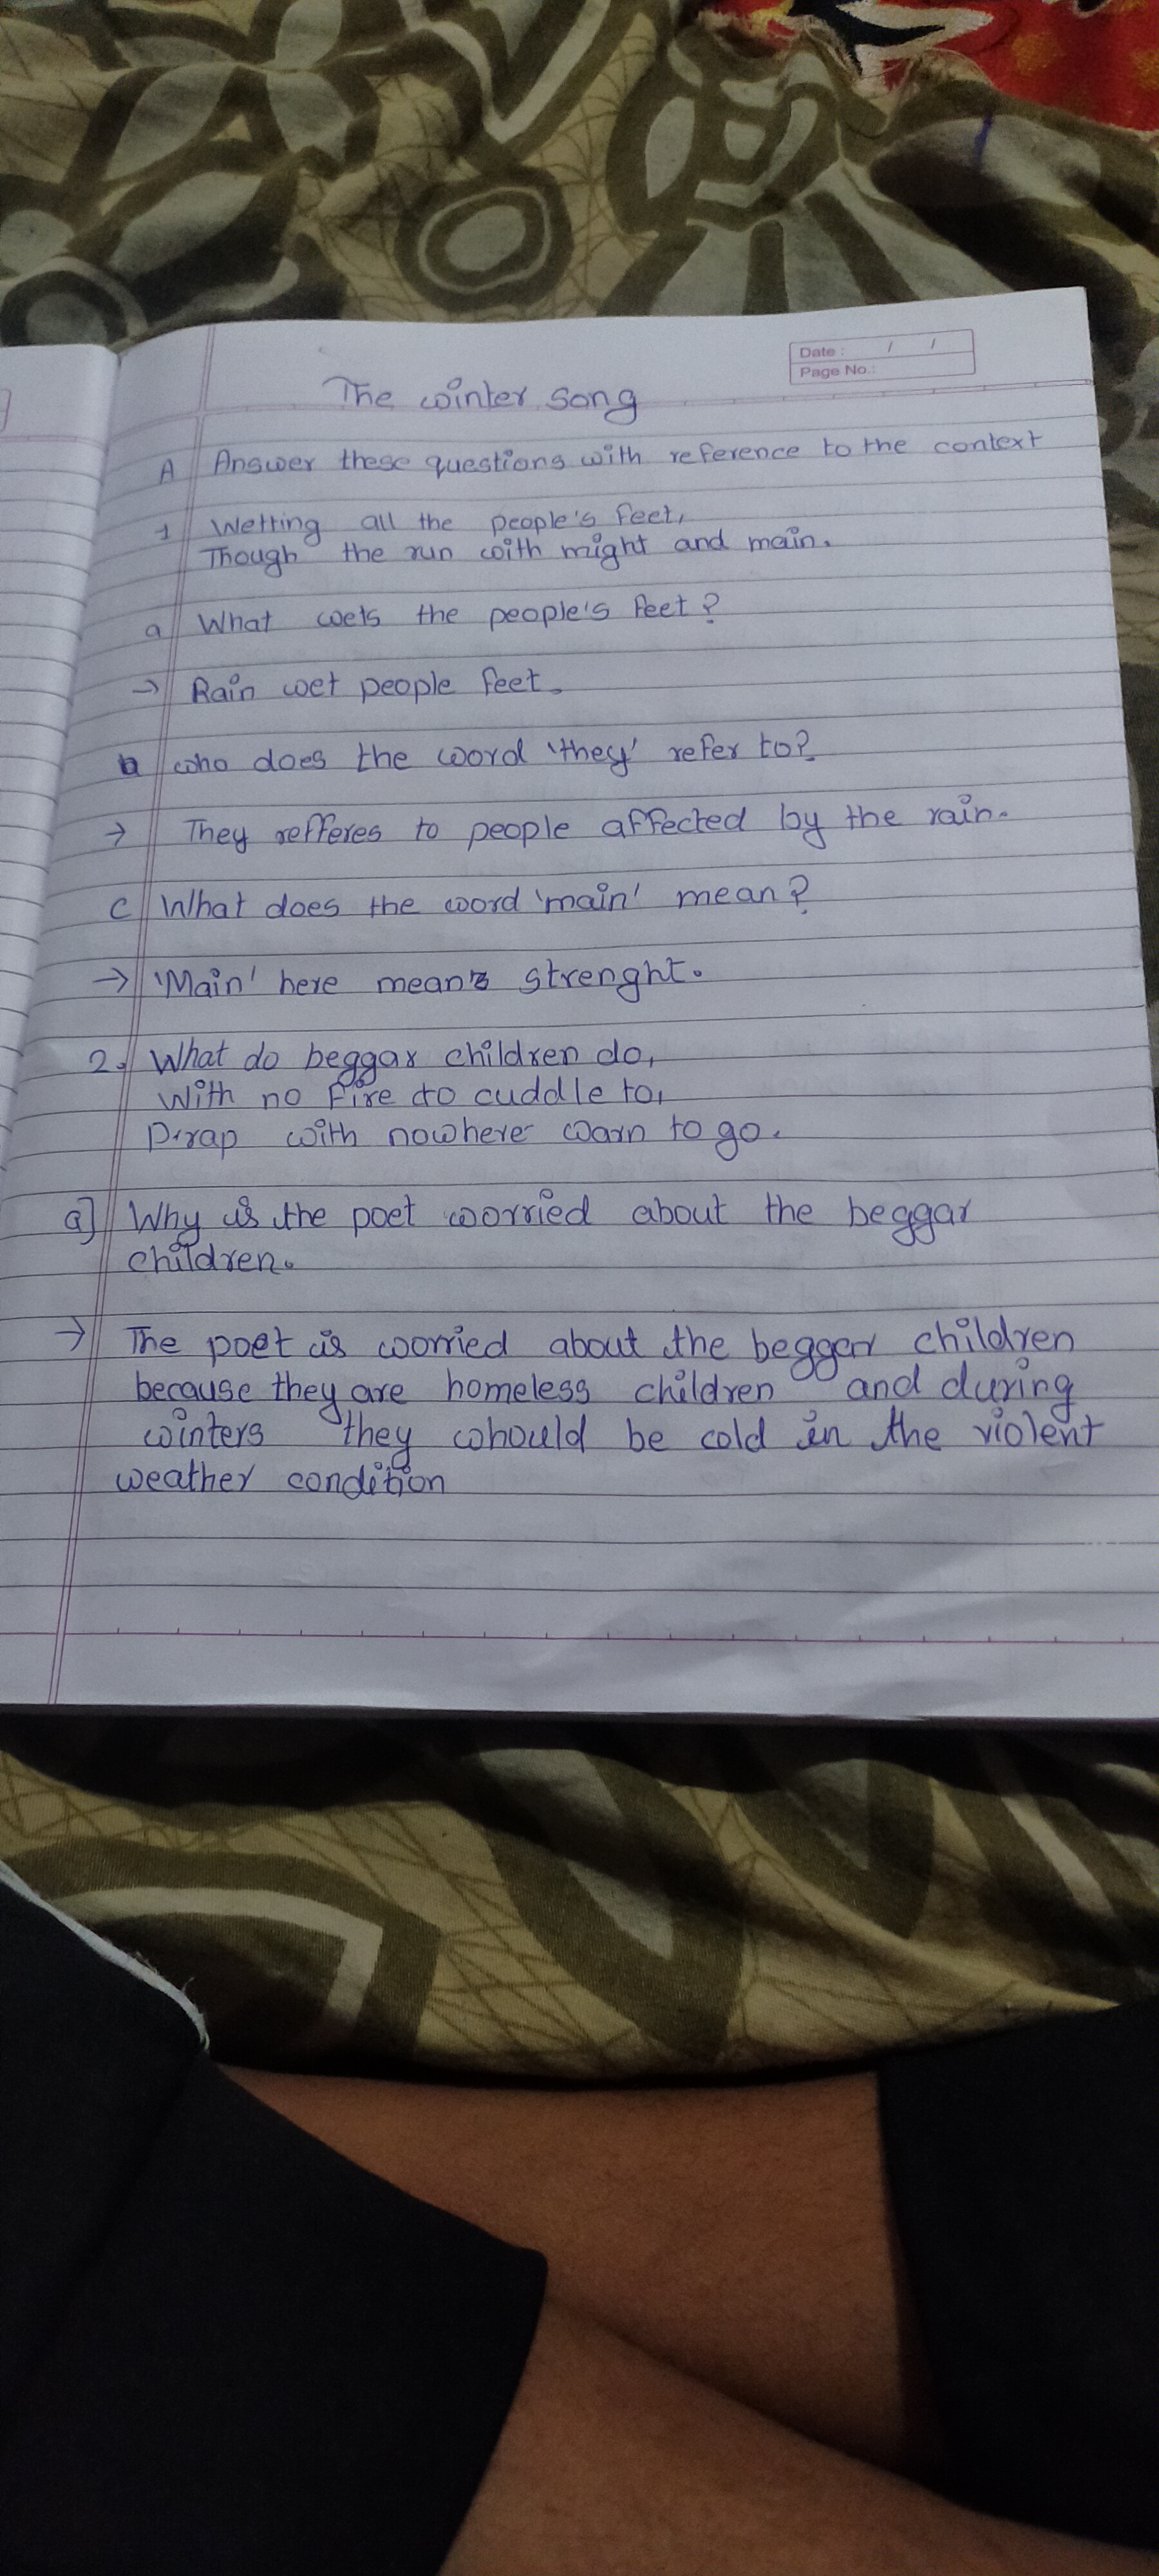 Date : / /
Page No.:
The winter song
A Answer these questions with reference to the context
1 Wetting all the people's feet,
Though the run with might and main.
a What wets the people's feet?
→ Rain wet people feet.
b who does the word 'they' refer to?
→ They refferes to people affected by the rain.
c What does the word 'main' mean?
→ 'Main' here means strenght.
2. What do beggar children do,
With no fire to cuddle to,
P-rap with nowhere warn to go.
a] Why is the poet worried about the beggar
children.
→ The poet is worried about the beggar children
because they are homeless children and during
winters they whould be cold in the violent
weather condition